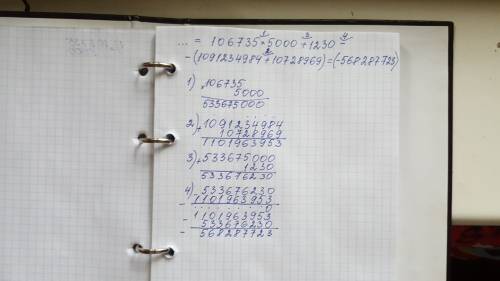 ... = 106735 · 5000 + 1230 -
1 3 4
- (1091234984 + 10728969) = (-568287723)
2
1) × 106735
5000
533675000
2) + 1091234984
10728969
1101963953
3) + 533675000
1230
533676230
4) - 533676230
1101963953
- 1101963953
533676230
- 568287723